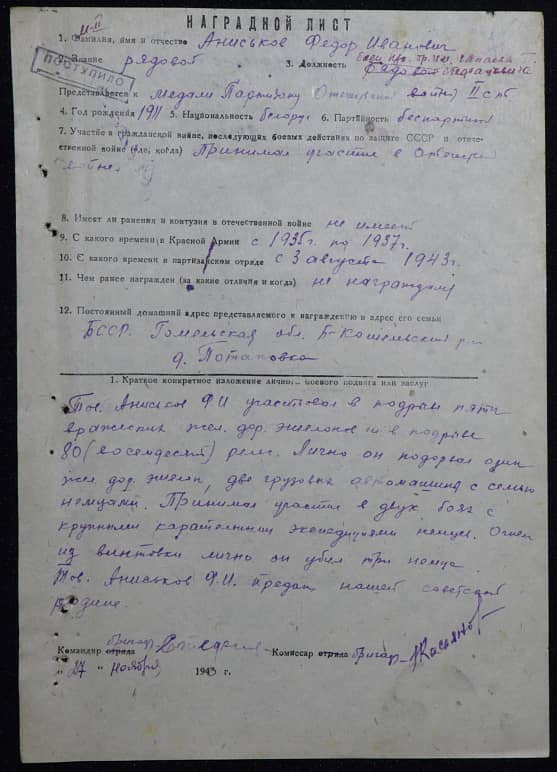 НАГРАДНОЙ ЛИСТ
1. Фамилия, имя и отчество Аниськов Федор Иванович
2. Звание рядовой 3. Должность
ПОСТУПИЛО
Представляется к медали Партизану Отечественной войны II ст
4. Год рождения 1911 5. Национальность белорус 6. Партийность беспартийн
7. Участие в гражданской войне, последующих боевых действиях по защите СССР и отече-
ственной войне (где, когда) Принимал участие в Отечествен
войне
8. Имеет ли ранения и контузии в отечественной войне не имеет
9. С какого времени в Красной Армии с 1935г. по 1937г.
10. С какого времени в партизанском отряде с 3 августа 1943г.
11. Чем ранее награжден (за какие отличия и когда) не награждался
12. Постоянный домашний адрес представляемого к награждению и адрес его семьи
БССР. Гомельская обл. Б-Кошелевский р-н
д. Потаповка
1. Краткое конкретное изложение личного боевого подвига или заслуг
Тов. Аниськов Ф.И. участвовал в подрыве пяти
вражеских жел. дор. эшелонов и в подрыве
80 (восемдесят) рельс. Лично он подорвал один
жел. дор. эшелон, две грузовых автомашины с семью
немцами. Принимал участие в двух боях с
крупными карательными экспедициями немцев. Огнем
из винтовки лично он убил три немца.
Тов. Аниськов Ф.И. предан нашей советской
родине.
Командир отряда бригады Комиссар отряда бригады Касьянов
" 27 " ноября 1943 г.